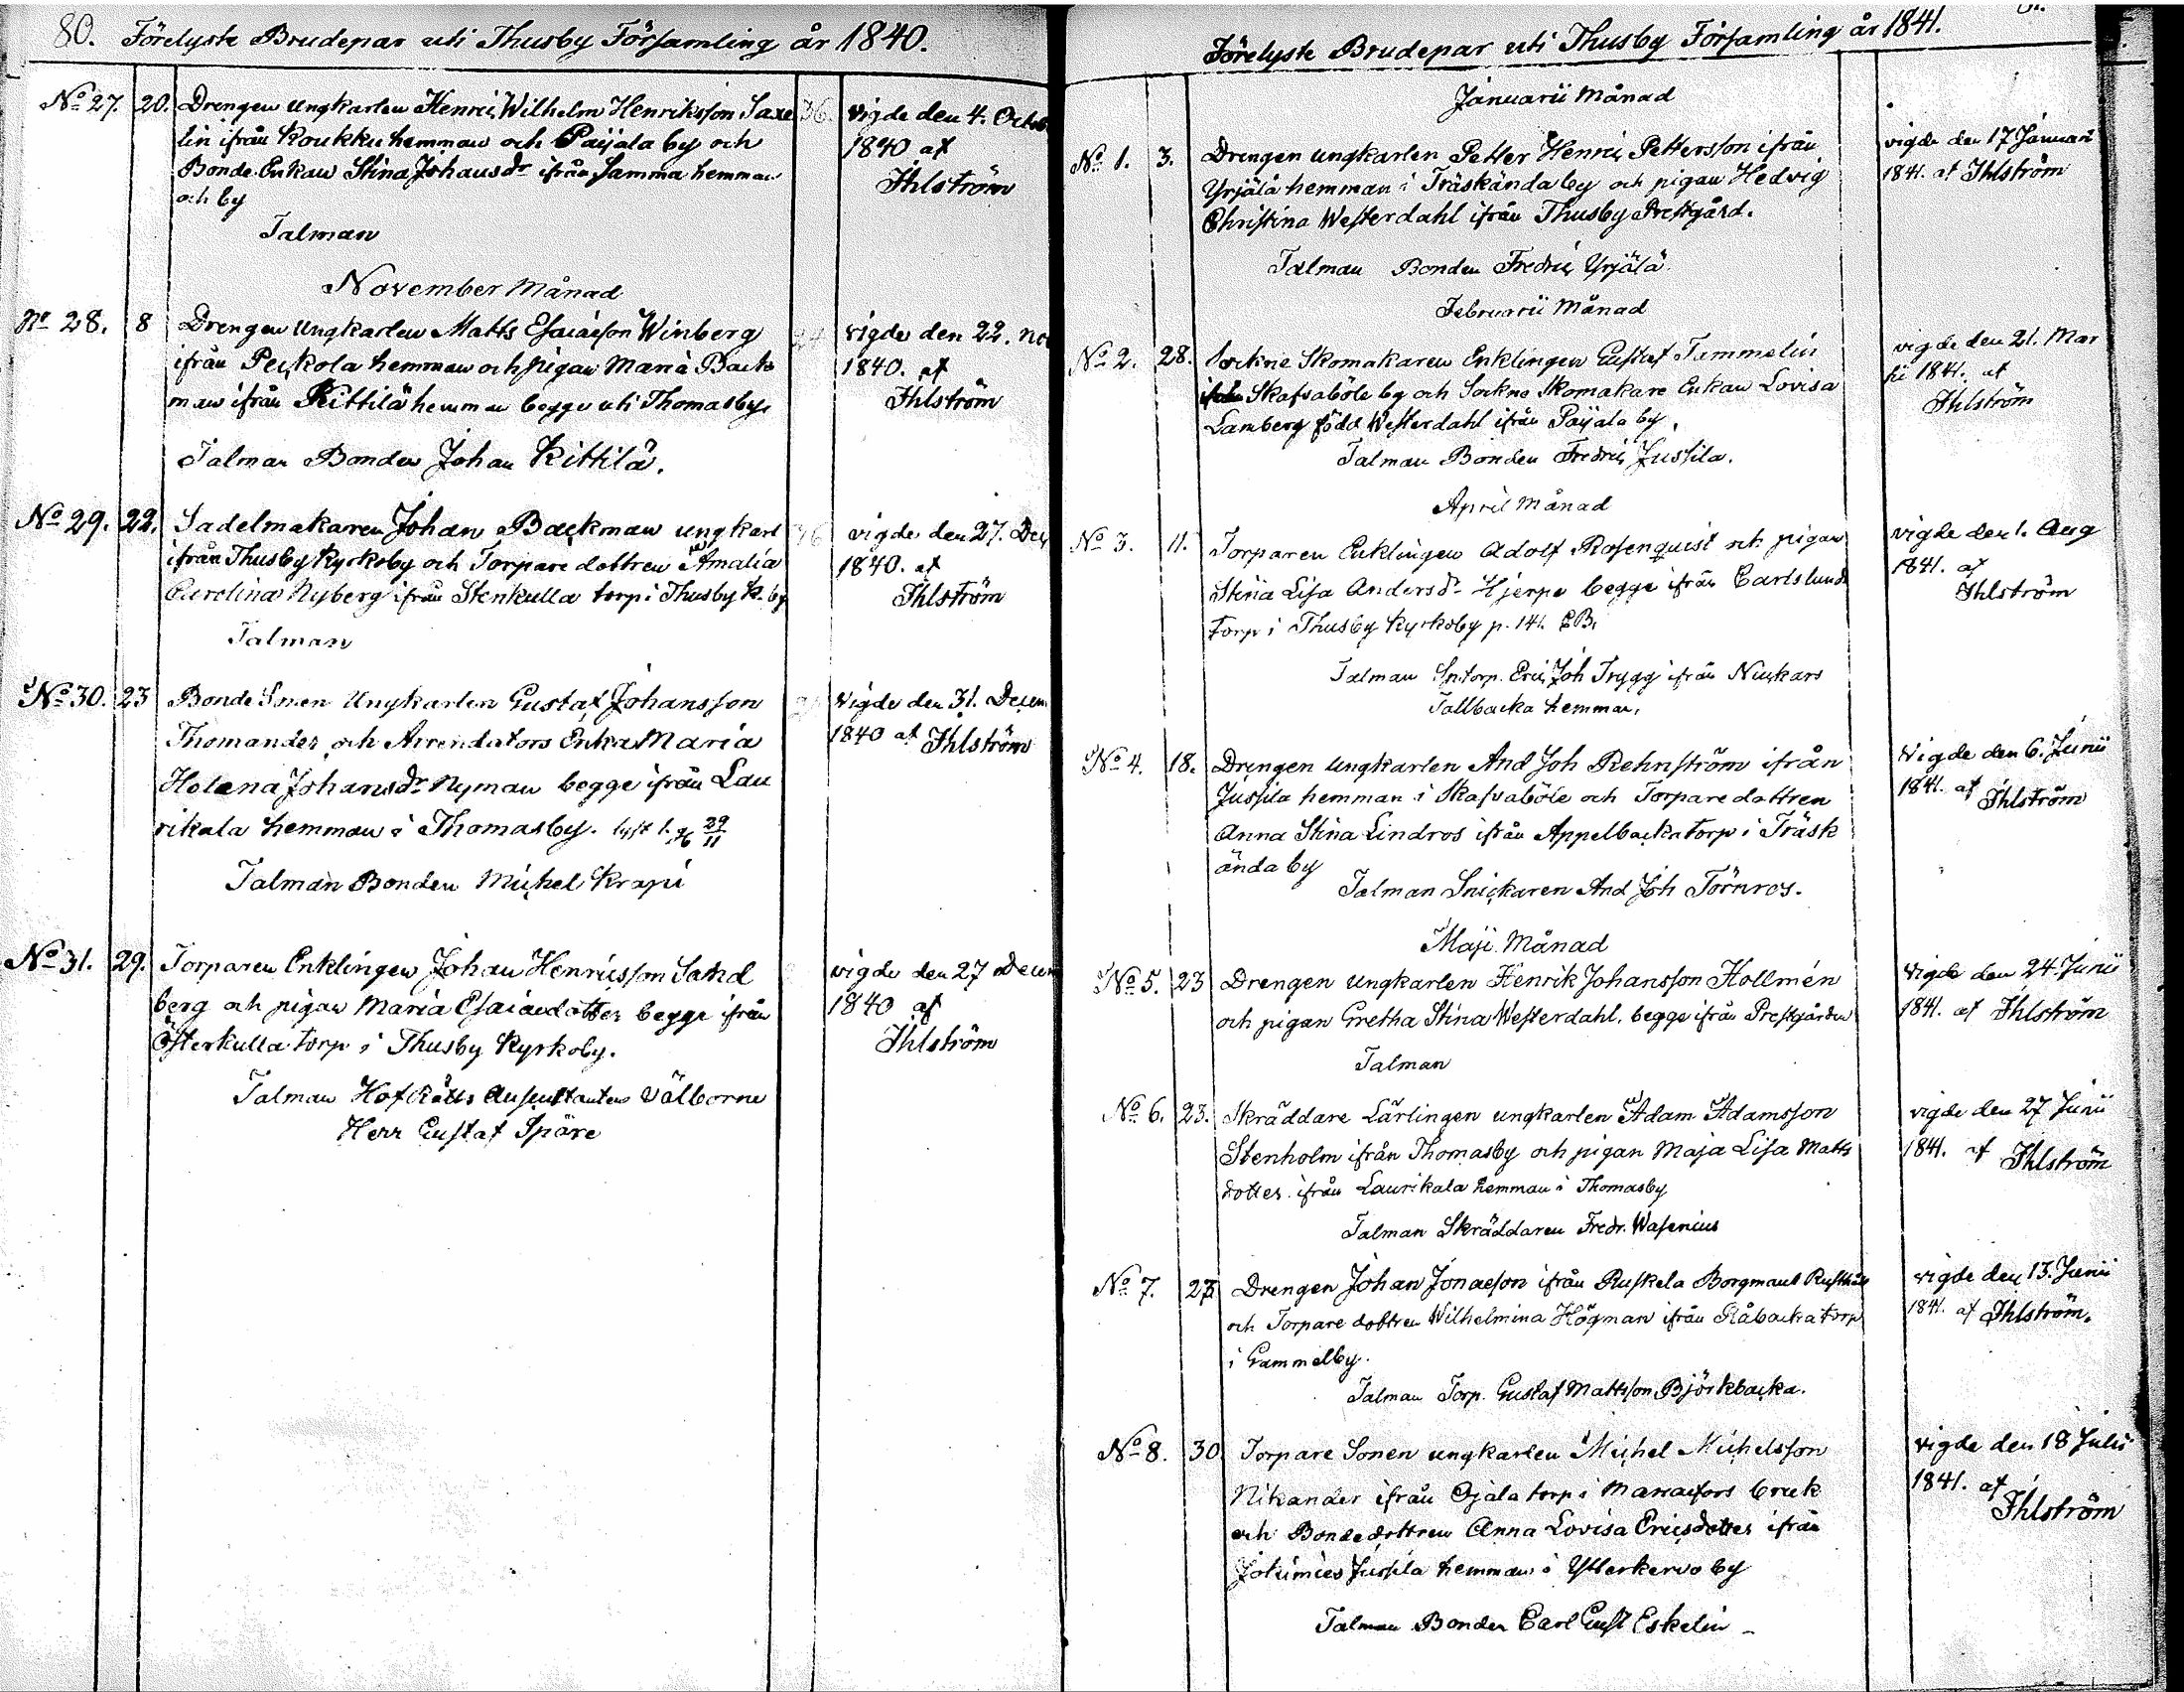 80. Förelyste Brudepar uti Thusby Församling år 1840.
No 27. 20. Drengen Ungkarlen Henric Wilhelm Henriksson Saxe 36. vigde den 4. Octob
lin ifrån Koukku hemman och Paijala by och 1840 af
Bonde Enkan Stina Johansdr ifrån samma hemman Ihlström
och by
Talman
November Månad
No 28. 8 Drengen Ungkarlen Matts Esaiæson Winberg 24 vigde den 22. no
ifrån Peckola hemman och pigan Maria Back 1840. af
man ifrån Kittilä hemman begge uti Thomasby Ihlström
Talman Bonden Johan Kittilä.
No 29. 22. Sadelmakaren Johan Backman ungkarl 36 vigde den 27. Dec
ifrån Thusby Kyrkoby och Torpare dottren Amalia 1840. af
Carolina Nyberg ifrån Stenkulla torp i Thusby K. by Ihlström
Talman
No 30. 23 Bonde Sonen Ungkarlen Gustaf Johansson vigde den 31. Decem
Thomander och Arrendators Enka Maria 1840 af Ihlström
Helena Johansdr Nyman begge ifrån Lau
rikala hemman i Thomasby. lyst 1. g 29/11
Talman Bonden Michel Krapi
No 31. 29. Torparen Enklingen Johan Henricsson Sand vigde den 27 Decem
berg och pigan Maria Esaiædotter begge ifrån 1840 af
Österkulla torp i Thusby Kyrkoby. Ihlström
Talman HofRätts Auscultanten Välborne
Herr Gustaf Spåre
Förelyste Brudepar uti Thusby Församling år 1841.
Januarii Månad
No 1. 3. Drengen ungkarlen Petter Henric Pettersson ifrån vigde den 17 Januari
Yrjälä hemman i Träskända by och pigan Hedvig 1841. af Ihlström
Christina Westerdahl ifrån Thusby Prestgård.
Talman Bonden Fredric Yrjälä
Februarii Månad
No 2. 28. Sockne Skomakaren Enklingen Gustaf Tammelin vigde den 21. Mar
ifrån Skafvaböle by och Sockne Skomakare Enkan Lovisa tii 1841. af
Lamberg född Westerdahl ifrån Paijala by. Ihlström
Talman Bonden Fredric Jussila.
April Månad
No 3. 11. Torparen Enklingen Adolf Rosenquist och pigan vigde den 1. Aug
Stina Lisa Andersdr Hjerpe begge ifrån Carlslund 1841. af
torp i Thusby Kyrkoby p. 141. CB. Ihlström
Talman Sntorp. Eric Joh Trygg ifrån Nickars
Tallbacka hemman.
No 4. 18. Drengen Ungkarlen And Joh Rehnström ifrån Vigde den 6. Junii
Jussila hemman i Skafvaböle och Torpare dottren 1841. af Ihlström
Anna Stina Lindros ifrån Appelbacka torp i Träsk
ända by
Talman Snickaren And Joh Törnros.
Maji Månad
No 5. 23 Drengen Ungkarlen Henrik Johansson Hollmén Vigde den 24. Junii
och pigan Gretha Stina Westerdahl. begge ifrån Prestgården 1841. af Ihlström
Talman
No 6. 23. Skräddare Lärlingen ungkarlen Adam Adamsson vigde den 27 Junii
Stenholm ifrån Thomasby och pigan Maja Lisa Matts 1841. af Ihlström
dotter ifrån Laurikala hemman i Thomasby
Talman Skräddaren Fredr. Wasenius
No 7. 23 Drengen Johan Jonæson ifrån Ruskela Borgmans Rusthåll vigde den 13. Junii
och Torpare dottren Wilhelmina Högman ifrån Råbacka torp 1841. af Ihlström.
i Gammelby.
Talman Torp. Gustaf Mattsson Björkbacka.
No 8. 30 Torpare Sonen ungkarlen Michel Michelsson vigde den 18 Julii
Nikander ifrån Ojala torp i Mariæfors bruk 1841. af
och Bondedottren Anna Lovisa Ericsdotter ifrån Ihlström
Jotimies Jussila hemman i Ytterkervo by
Talman Bonden Carl Gust Eskelin